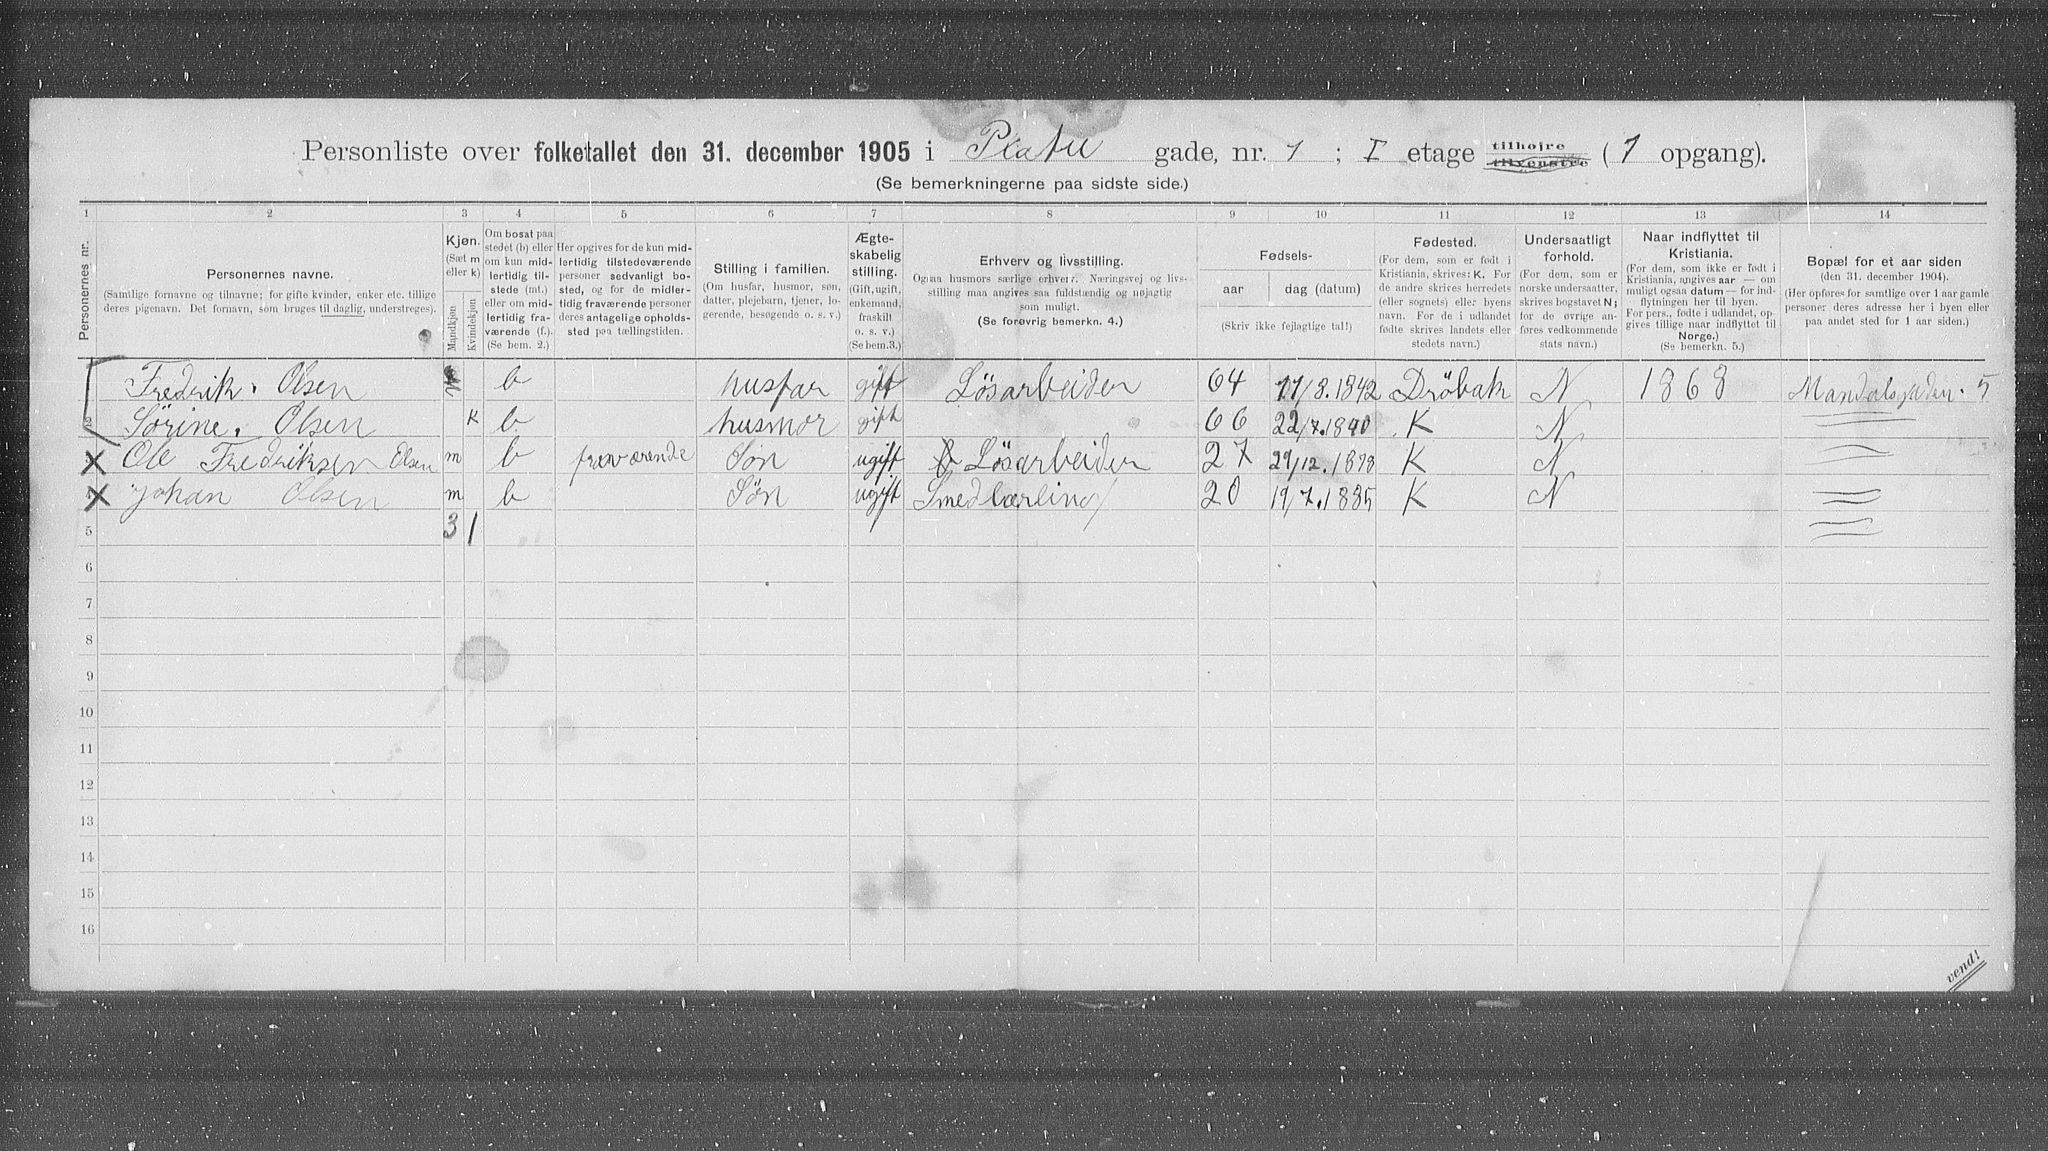 Personliste over folketallet den 31. december 1905 i Platu gade, nr. 1 ; I etage tilhøjre tilvenstre (1 opgang).
(Se bemerkningerne paa sidste side.)
1 2 3 4 5 6 7 8 9 10 11 12 13 14
Personernes nr.
Personernes navne.
(Samtlige fornavne og tilnavne; for gifte kvinder, enker etc. tillige deres pigenavn. Det fornavn, som bruges til daglig, understreges).
Kjøn.
(Sæt m eller k)
Mandkjøn
Kvindekjøn
Om bosat paa stedet (b) eller om kun midlertidig tilstede (mt.) eller om midlertidig fraværende (f.). (Se bem. 2.)
Her opgives for de kun midlertidig tilstedeværende personer sedvanligt bosted, og for de midlertidig fraværende personer deres antagelige opholdssted paa tællingstiden.
Stilling i familien.
(Om husfar, husmor, søn, datter, plejebarn, tjener, logerende, besøgende o. s. v.)
Ægteskabelig stilling.
(Gift, ugift, enkemand, fraskilt o. s. v.)
(Se bem. 3.)
Erhverv og livsstilling.
Ogsaa husmors særlige erhverv. Næringsvej og livsstilling maa angives saa fuldstændig og nøjagtig som muligt.
(Se forøvrig bemerkn. 4.)
Fødsels-
aar
dag (datum)
(Skriv ikke fejlagtige tal!)
Fødested.
(For dem, som er født i Kristiania, skrives: K. For de andre skrives herredets (eller sognets) eller byens navn. For de i udlandet fødte skrives landets eller stedets navn.)
Undersaatligt forhold.
(For dem, som er norske undersaatter, skrives bogstavet N; for de øvrige anføres vedkommende stats navn.)
Naar indflyttet til Kristiania.
(For dem, som ikke er født i Kristiania, angives aar — om muligt ogsaa datum — for indflytningen her til byen. For pers., fødte i udlandet, opgives tillige naar indflyttet til Norge.)
(Se bemerkn. 5.)
Bopæl for et aar siden
(den 31. december 1904).
(Her opføres for samtlige over 1 aar gamle personer deres adresse her i byen eller paa andet sted for 1 aar siden.)
Fredrik. Olsen m b husfar gift Løsarbeider 64 17/8.1842 Drøbak N 1868 Mandalsgaden. 5
2 Sørine. Olsen K b husmor gift 66 22/7.1840 K N
3 Ole Fredriksen Olsen m b fraværende Søn ugift Løsarbeider 27 29/12.1878 K N
4 Johan Olsen m b Søn ugift Smedlærling 20 19/7.1885 K N
5 3 1
6
7
8
9
10
11
12
13
14
15
16
vend!